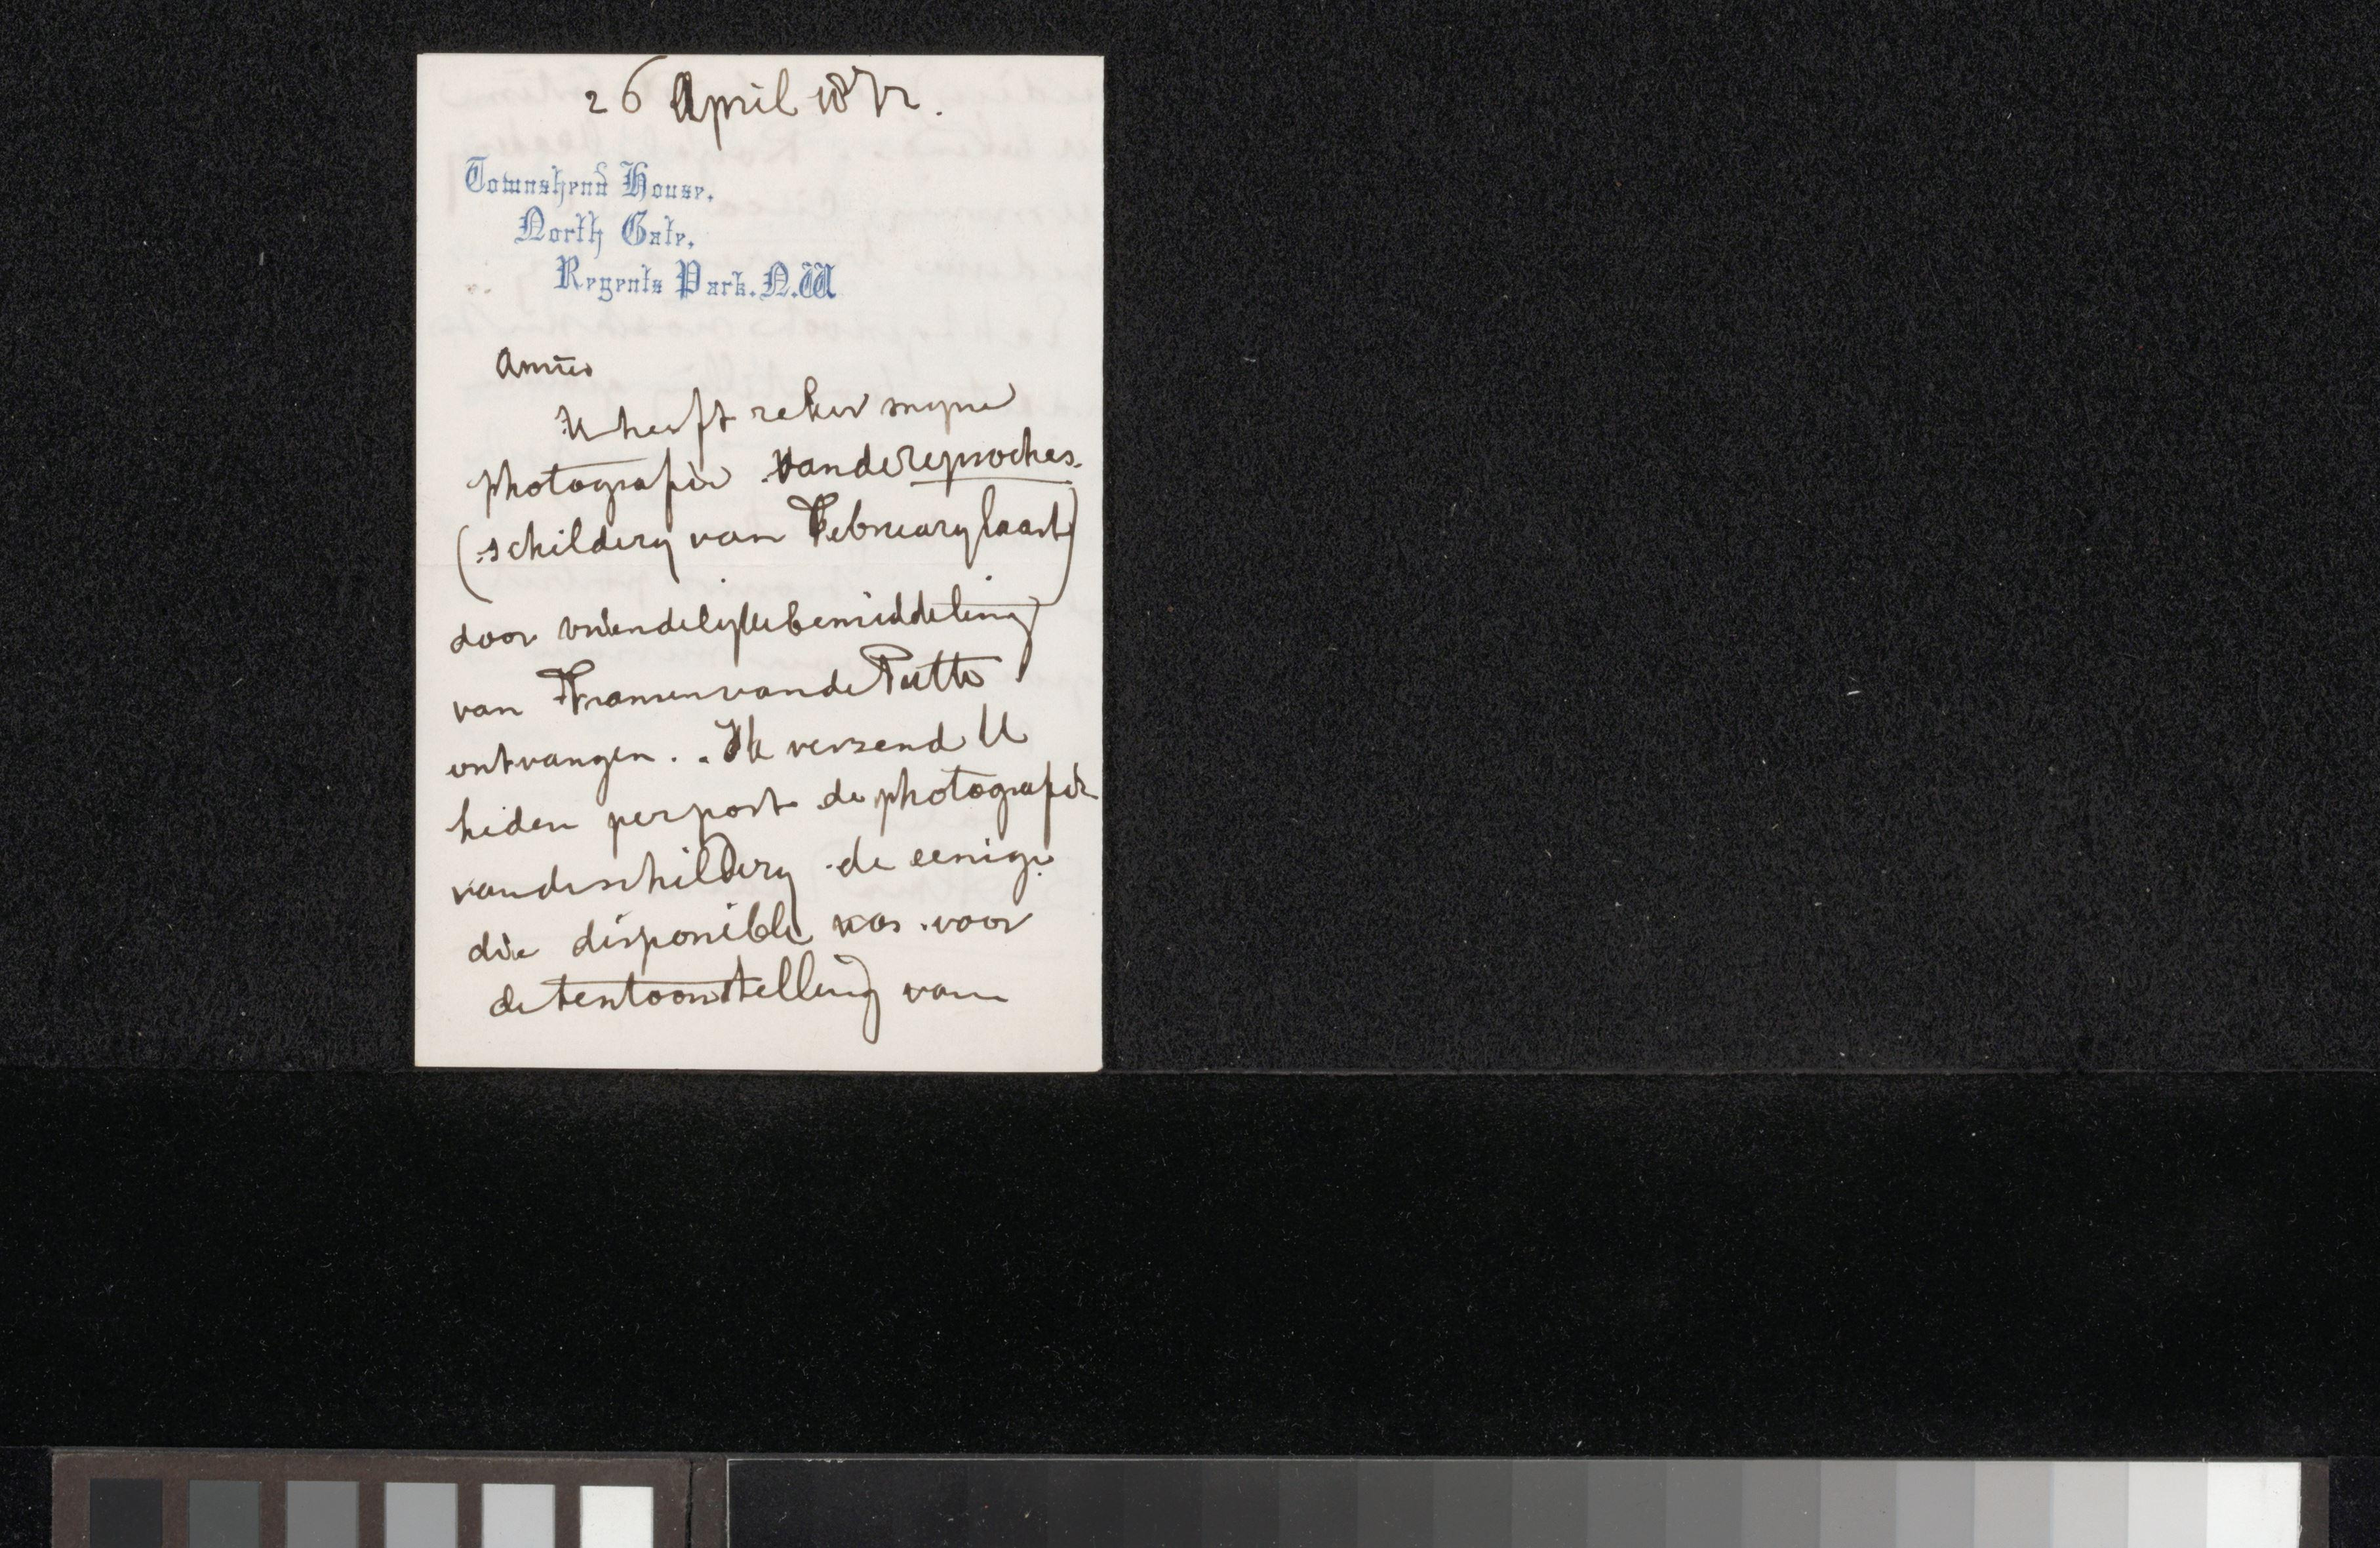 26 April 1872.
Townshend House,
North Gate,
Regents Park. N.W
Amice
U heeft zeker myne
photografie van de reproches.
(schildery van February laast)
door vriendelyke bemiddeling
van Fransen van de Putte
ontvangen.. Ik verzend U
heden per post de photografie
van de schildery de eenige
die disponible was voor
de tentoonstelling van